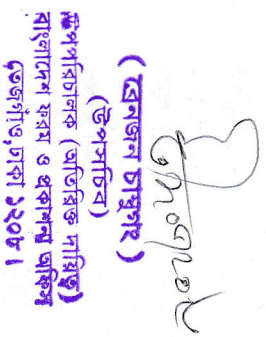 ( রেনজন চাম্বুগং )
(উপসচিব)
উপপরিচালক (অতিরিক্ত দায়িত্ব)
বাংলাদেশ ফরম ও প্রকাশনা অফিস
তেজগাঁও, ঢাকা ১২০৮।